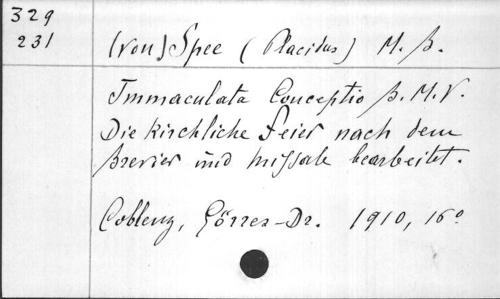 329
231
(von) Spee (Placidus) M. B.
Immaculata Conceptio B. M. V.
Die kirchliche Feier nach dem
Brevier und Missale bearbeitet.
Coblenz, Görres-Dr. 1910, 16°